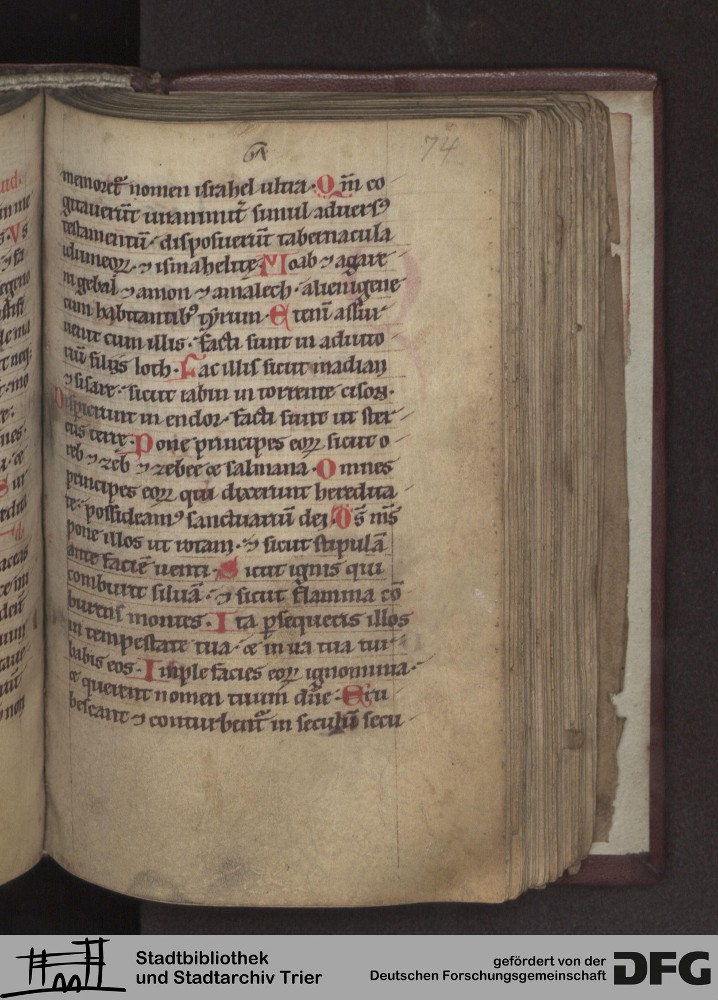 74
memoret᷑ nomen israhel ultra· Qm̅ co
gitauerūt unanimit᷑ simul aduersꝰ
testamentū· disposuerūt tabernacula
idumeoꝝ ⁊ ismahelite· Moab ⁊ agare
ni gebal ⁊ amon ⁊ amalech· alienigene
cum habitantibꝰ tyrum· Etenī assur
uenit cum illis· facti sunt in adiuto
riū filijs loth· Fac illis sicut madian
⁊ sisare· sicut iabin in torrente cison·
Disperierunt in endor· facti sunt ut ster
cus terre· Pone principes eoꝝ sicut o
reb ⁊ zeb ⁊ zebee et salmana· Omnes
principes eoꝝ qui dixerunt heredita
te· possideamꝰ sanctuariū dei· Ds̅ ms̅
pone illos ut rotam· ⁊ sicut stipulā
ante faciē uenti· Sicut ignis qui
comburit siluā· ⁊ sicut flamma cō
burens montes· Ita ꝑsequeris illos
in tempestate tua· et in ira tua tur
babis eos· Imple facies eoꝝ ignominia·
et querent nomen tuum dn̅e· Eru
bescant ⁊ conturbent᷑ in seculū secu
Stadtbibliothek
und Stadtarchiv Trier
gefördert von der
Deutschen Forschungsgemeinschaft
DFG